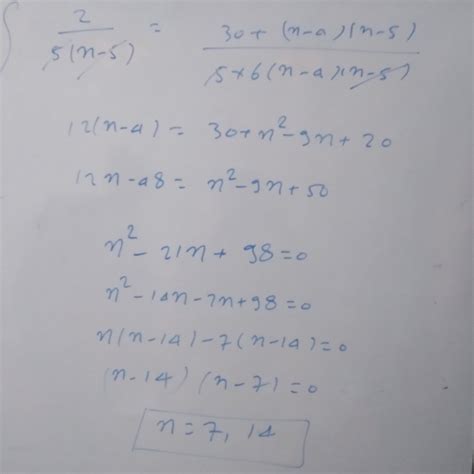 2 / 5(n-5) = 30+(n-a)(n-5) / 5×6(n-a)(n-5)
12(n-a) = 30+n²-9n+20
12n-a8 = n²-9n+50
n²-21n+98=0
n²-14n-7n+98=0
n(n-14)-7(n-14)=0
(n-14)(n-7)=0
n=7, 14